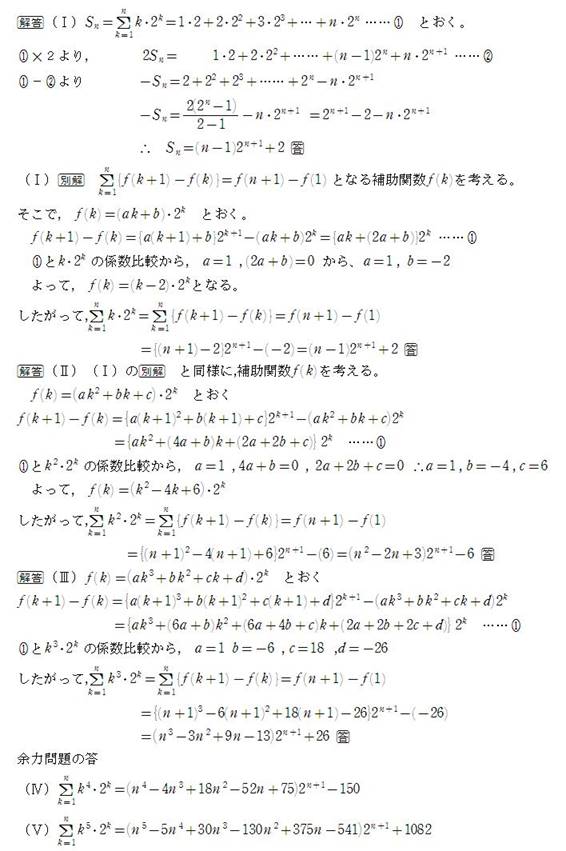 解答 (Ⅰ) Sₙ=∑[k=1→n] k・2ᵏ=1・2+2・2²+3・2³+…+n・2ⁿ ……① とおく。
①×2より, 2Sₙ= 1・2+2・2²+……+(n−1)2ⁿ+n・2ⁿ⁺¹ ……②
①−②より −Sₙ=2+2²+2³+……+2ⁿ−n・2ⁿ⁺¹
−Sₙ=2(2ⁿ−1)/(2−1)−n・2ⁿ⁺¹ =2ⁿ⁺¹−2−n・2ⁿ⁺¹
∴ Sₙ=(n−1)2ⁿ⁺¹+2 答
(Ⅰ) 別解 ∑[k=1→n]{f(k+1)−f(k)}=f(n+1)−f(1) となる補助関数f(k)を考える。
そこで, f(k)=(ak+b)・2ᵏ とおく。
f(k+1)−f(k)={a(k+1)+b}2ᵏ⁺¹−(ak+b)2ᵏ={ak+(2a+b)}2ᵏ ……①
①とk・2ᵏ の係数比較から, a=1 ,(2a+b)=0 から、a=1 , b=−2
よって, f(k)=(k−2)・2ᵏとなる。
したがって,∑[k=1→n] k・2ᵏ=∑[k=1→n]{f(k+1)−f(k)}=f(n+1)−f(1)
={(n+1)−2}2ⁿ⁺¹−(−2)=(n−1)2ⁿ⁺¹+2 答
解答 (Ⅱ) (Ⅰ)の別解 と同様に,補助関数f(k)を考える。
f(k)=(ak²+bk+c)・2ᵏ とおく
f(k+1)−f(k)={a(k+1)²+b(k+1)+c}2ᵏ⁺¹−(ak²+bk+c)2ᵏ
={ak²+(4a+b)k+(2a+2b+c)} 2ᵏ ……①
①とk²・2ᵏ の係数比較から, a=1 ,4a+b=0 , 2a+2b+c=0 ∴a=1 , b=−4 , c=6
よって, f(k)=(k²−4k+6)・2ᵏ
したがって,∑[k=1→n] k²・2ᵏ=∑[k=1→n]{f(k+1)−f(k)}=f(n+1)−f(1)
={(n+1)²−4(n+1)+6}2ⁿ⁺¹−(6)=(n²−2n+3)2ⁿ⁺¹−6 答
解答 (Ⅲ) f(k)=(ak³+bk²+ck+d)・2ᵏ とおく
f(k+1)−f(k)={a(k+1)³+b(k+1)²+c(k+1)+d}2ᵏ⁺¹−(ak³+bk²+ck+d)2ᵏ
={ak³+(6a+b)k²+(6a+4b+c)k+(2a+2b+2c+d)} 2ᵏ ……①
①とk³・2ᵏ の係数比較から, a=1 b=−6 , c=18 ,d=−26
したがって,∑[k=1→n] k³・2ᵏ=∑[k=1→n]{f(k+1)−f(k)}=f(n+1)−f(1)
={(n+1)³−6(n+1)²+18(n+1)−26}2ⁿ⁺¹−(−26)
=(n³−3n²+9n−13)2ⁿ⁺¹+26 答
余力問題の答
(Ⅳ) ∑[k=1→n] k⁴・2ᵏ=(n⁴−4n³+18n²−52n+75)2ⁿ⁺¹−150
(Ⅴ) ∑[k=1→n] k⁵・2ᵏ=(n⁵−5n⁴+30n³−130n²+375n−541)2ⁿ⁺¹+1082